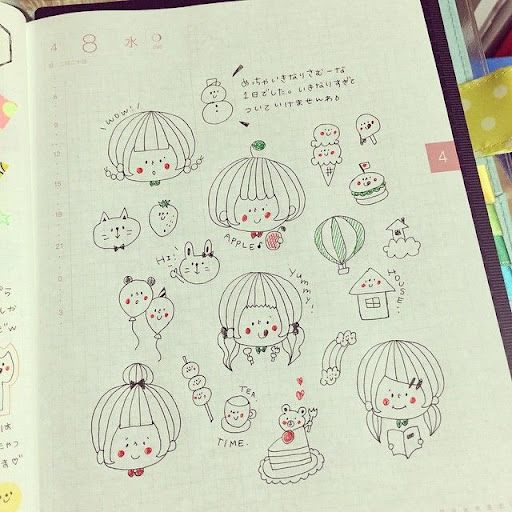 4 8 水
めっちゃいきなりさむーな
1日でした。いきなりすぎて
ついていけませんわ。
\WOW!/
4
APPLE
Hi!
Yummy!
HOUSE
TEA
TIME.